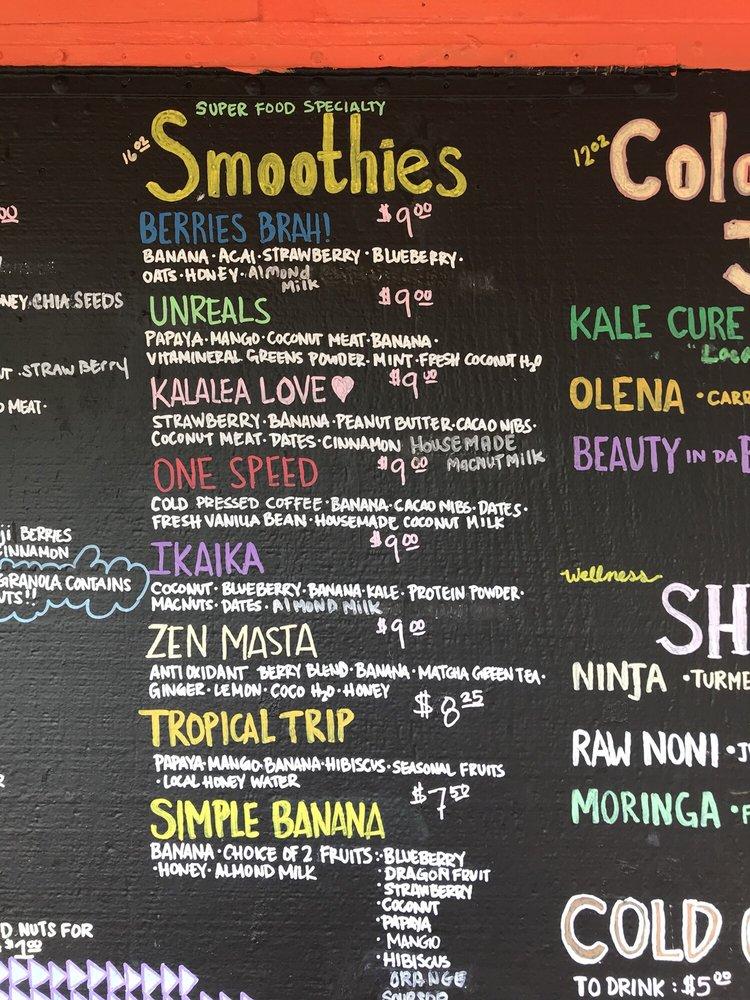 SUPER FOOD SPECIALTY
16oz Smoothies
BERRIES BRAH! $9.00
BANANA · ACAI · STRAWBERRY · BLUEBERRY ·
OATS · HONEY · Almond
Milk
UNREALS $9.00
PAPAYA · MANGO · COCONUT MEAT · BANANA ·
VITAMINERAL GREENS POWDER · MINT · FRESH COCONUT H2O
KALALEA LOVE♥ $9.00
STRAWBERRY · BANANA · PEANUT BUTTER · CACAO NIBS ·
COCONUT MEAT · DATES · CINNAMON HOUSEMADE
MACNUT MILK
ONE SPEED $9.00
COLD PRESSED COFFEE · BANANA · CACAO NIBS · DATES ·
FRESH VANILLA BEAN · HOUSEMADE COCONUT MILK
IKAIKA $9.00
COCONUT · BLUEBERRY · BANANA · KALE · PROTEIN POWDER ·
MACNUTS · DATES · Almond Milk
ZEN MASTA $9.00
ANTIOXIDANT BERRY BLEND · BANANA · MATCHA GREEN TEA ·
GINGER · LEMON · COCO H2O · HONEY
TROPICAL TRIP $8.25
PAPAYA · MANGO · BANANA · HIBISCUS · SEASONAL FRUITS
· LOCAL HONEY WATER
SIMPLE BANANA $7.50
BANANA · CHOICE OF 2 FRUITS: · BLUEBERRY
· HONEY · ALMOND MILK · DRAGONFRUIT
· STRAWBERRY
· COCONUT
· PAPAYA
· MANGO
· HIBISCUS
ORANGE
NEY · CHIA SEEDS
· STRAWBERRY
MEAT ·
BERRIES
CINNAMON
GRANOLA CONTAINS
NUTS!!
NUTS FOR
$1.00
12oz Col
KALE CURE
OLENA · CARR
BEAUTY IN DA B
Wellness
SH
NINJA · TURME
RAW NONI ·
MORINGA ·
COLD
TO DRINK : $5.00